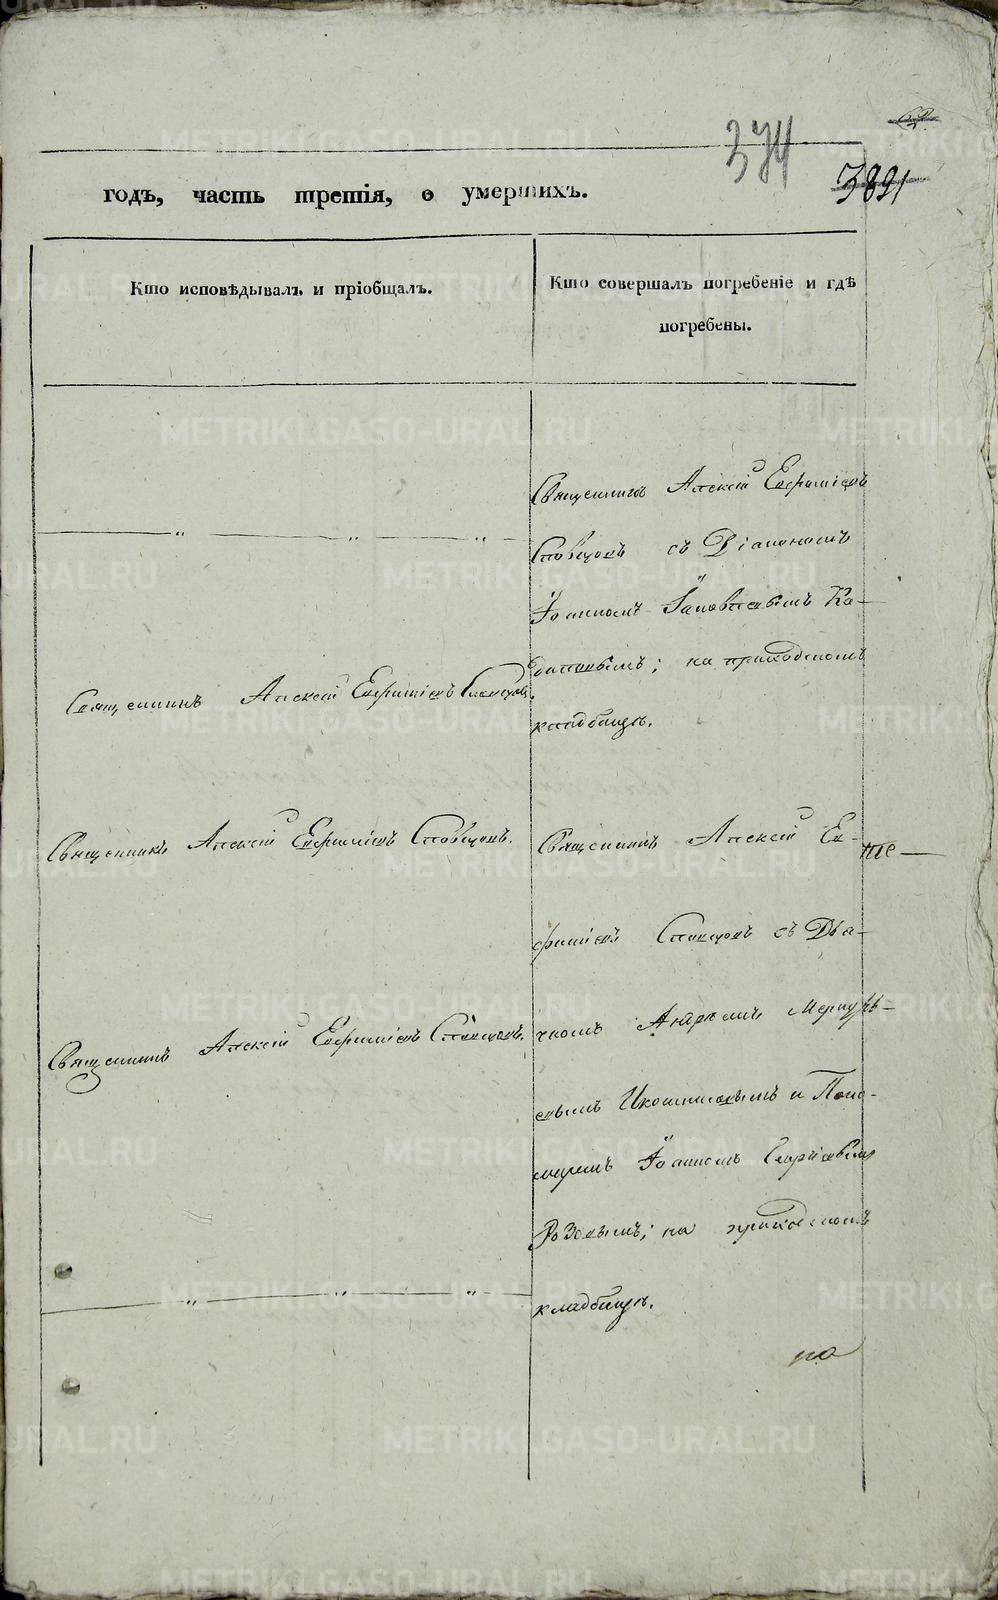 374
3891
годъ, часть третія, о умершихъ.
Кто исповѣдывалъ и пріобщалъ.
Кто совершалъ погребеніе и гдѣ
погребены.
Священникъ Алексій Евфиміевъ
Словцовъ съ Діакономъ
Іоанномъ Іаковлевымъ Ка-
; на приходскомъ
кладбищѣ.
Священникъ Алексій Евфиміевъ Словцовъ.
Священникъ Алексій Евфиміевъ Словцовъ.
Священникъ Алексій Ев-
фиміевъ Словцовъ съ Дья-
чкомъ Андреемъ Меркурь-
евымъ и Поно-
маремъ Іоанномъ Сергіевымъ
; на приходскомъ
кладбищѣ.
Священникъ Алексій Евфиміевъ Словцовъ.
те
по
METRIKI.GASO-URAL.RU